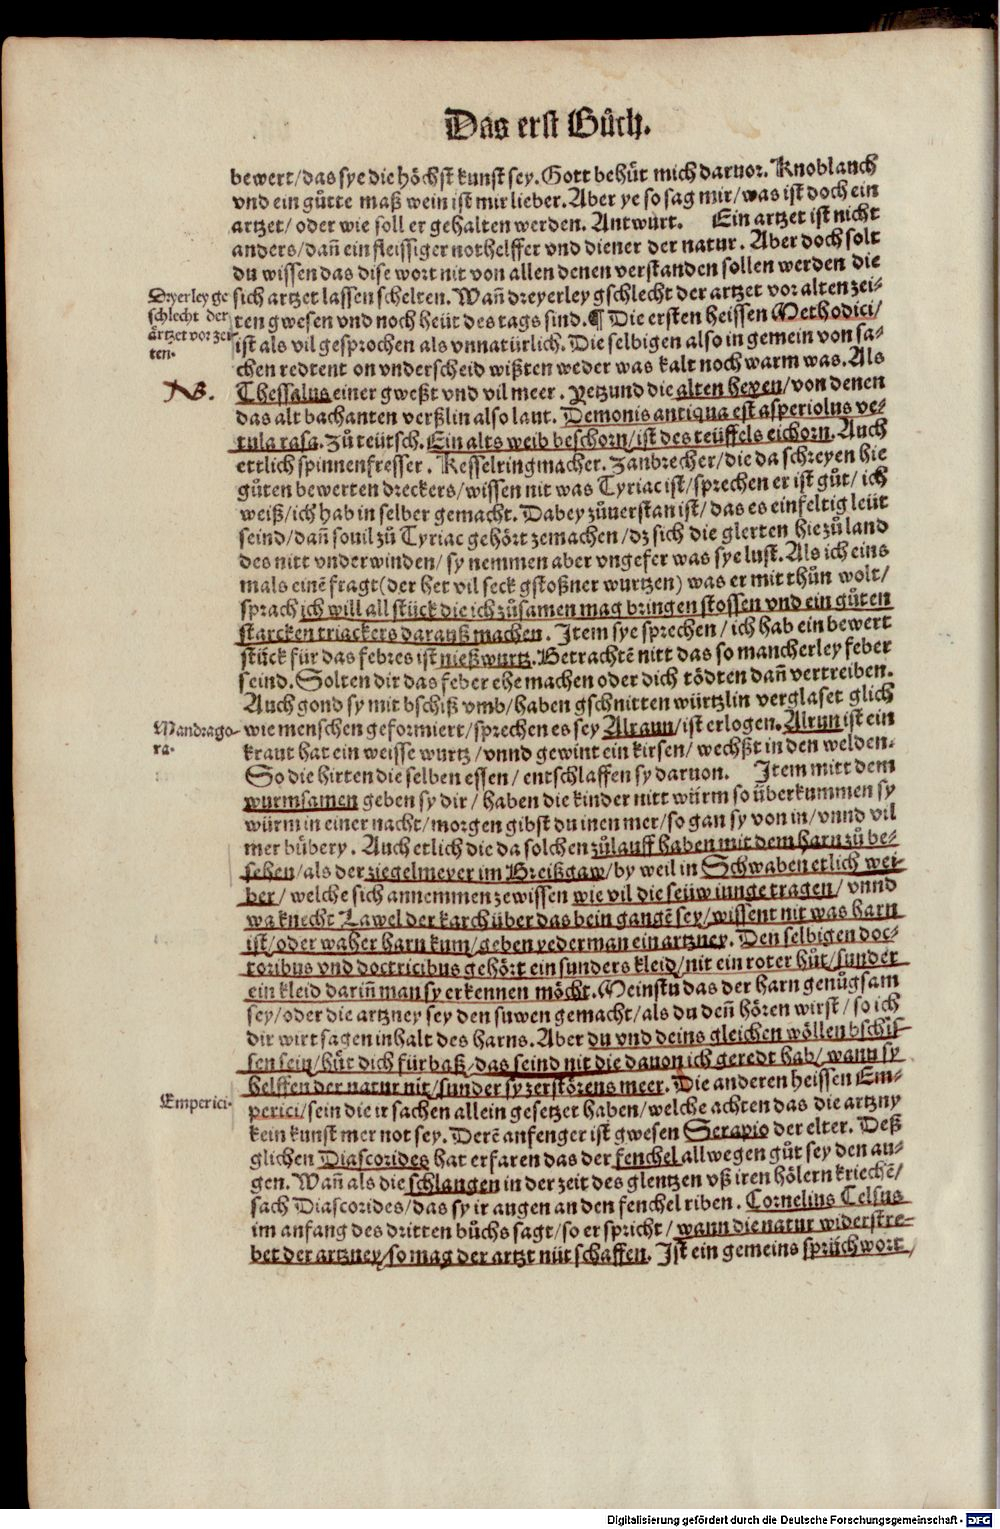 Das erst Bůch.
bewert/das sye die höchst kunst sey. Gott behüt mich daruor. Knoblauch
vnd ein gůtte maß wein ist mir lieber. Aber ye so sag mir/was ist doch ein
artzet/oder wie soll er gehalten werden. Antwurt. Ein artzet ist nicht
anders/dañ ein fleissiger nothelffer vnd diener der natur. Aber doch solt
du wissen das dise wort nit von allen denen verstanden sollen werden die
sich artzet lassen schelten. Wañ dreyerley gschlecht der artzet vor alten zei-
ten gwesen vnd noch heüt des tags sind. ¶ Die ersten heissen Methodici/
ist als vil gesprochen als vnnatürlich. Die selbigen also in gemein von sa-
chen redtent on vnderscheid wißten weder was kalt noch warm was. Als
Thessalus einer gweßt vnd vil meer. Yetzund die alten hexen/von denen
das alt bachanten verßlin also laut. Demonis antiqua est asperiolus ve-
tula rasa. Zů teütsch. Ein alts weib beschorn/ist des teüffels eichorn. Auch
ettlich spinnenfresser. Kesselringmacher. Zanbrecher/die da schreyen hie
gůten bewerten dreckers/wissen nit was Tyriac ist/sprechen er ist gůt/ich
weiß/ich hab in selber gemacht. Dabey zůuerstan ist/das es einfeltig leüt
seind/dañ souil zů Tyriac gehört zemachen/dz sich die glerten hie zů land
des nitt vnderwinden/sy nemmen aber vngefer was sye lust. Als ich eins
mals einē fragt(der het vil seck gstoßner wurtzen) was er mit thůn wolt/
sprach ich will all stück die ich zůsamen mag bringen stossen vnd ein gůten
starcken triackers darauß machen. Item sye sprechen/ich hab ein bewert
stück für das febres ist nießwurtz. Betrachtē nitt das so mancherley feber
seind. Solten dir das feber ehe machen oder dich tödten dañ vertreiben.
Auch gond sy mit bschiß vmb/haben gschnitten würtzlin verglaset glich
wie menschen geformiert/sprechen es sey Alraun/ist erlogen. Alrun ist ein
kraut hat ein weisse wurtz/vnnd gewint ein kirsen/wechßt in den welden.
So die hirten die selben essen/entschlaffen sy daruon. Item mitt dem
wurmsamen geben sy dir/haben die kinder nitt würm so überkummen sy
würm in einer nacht/morgen gibst du inen mer/so gan sy von in/vnnd vil
mer bübery. Auch etlich die da solchen zůlauff haben mit dem harn zů be-
sehen/als der ziegelmeyer im Breißgaw/by weil in Schwaben etlich wei-
ber/welche sich annemmen zewissen wie vil die seüw iunge tragen/vnnd
wa knecht Lawel der karch über das bein gangē sey/wissent nit was harn
ist/oder waher harn kum/geben yederman ein artzney. Den selbigen doc-
toribus vnd doctricibus gehört ein sunders kleid/nit ein roter hůt/sunder
ein kleid dariñ man sy erkennen möcht. Meinstu das der harn genůgsam
sey/oder die artzney sey den suwen gemacht/als du deñ hören wirst/so ich
dir wirt sagen inhalt des harns. Aber du vnd deins gleichen wöllen bschis-
sen sein/hüt dich fürbaß/das seind nit die dauon ich geredt hab/wann sy
helffen der natur nit/sunder sy zerstörens meer. Die anderen heissen Em-
perici/sein die ir sachen allein gesetzet haben/welche achten das die artzny
kein kunst mer not sey. Derē anfenger ist gwesen Serapio der elter. Deß
glichen Diascorides hat erfaren das der fenchel allwegen gůt sey den au-
gen. Wañ als die schlangen in der zeit des glentzen vß iren hölern kriechē/
sach Diascorides/das sy ir augen an den fenchel riben. Cornelius Celsus
im anfang des dritten bůchs sagt/so er spricht/wann die natur widerstre-
bet der artzney/so mag der artzt nüt schaffen. Ist ein gemeins sprüchwort/
Dryerley ge
schlecht der
ärtzet vor zei
ten.
NB.
Mandrago-
ra.
Emperici.
Digitalisierung gefördert durch die Deutsche Forschungsgemeinschaft - DFG